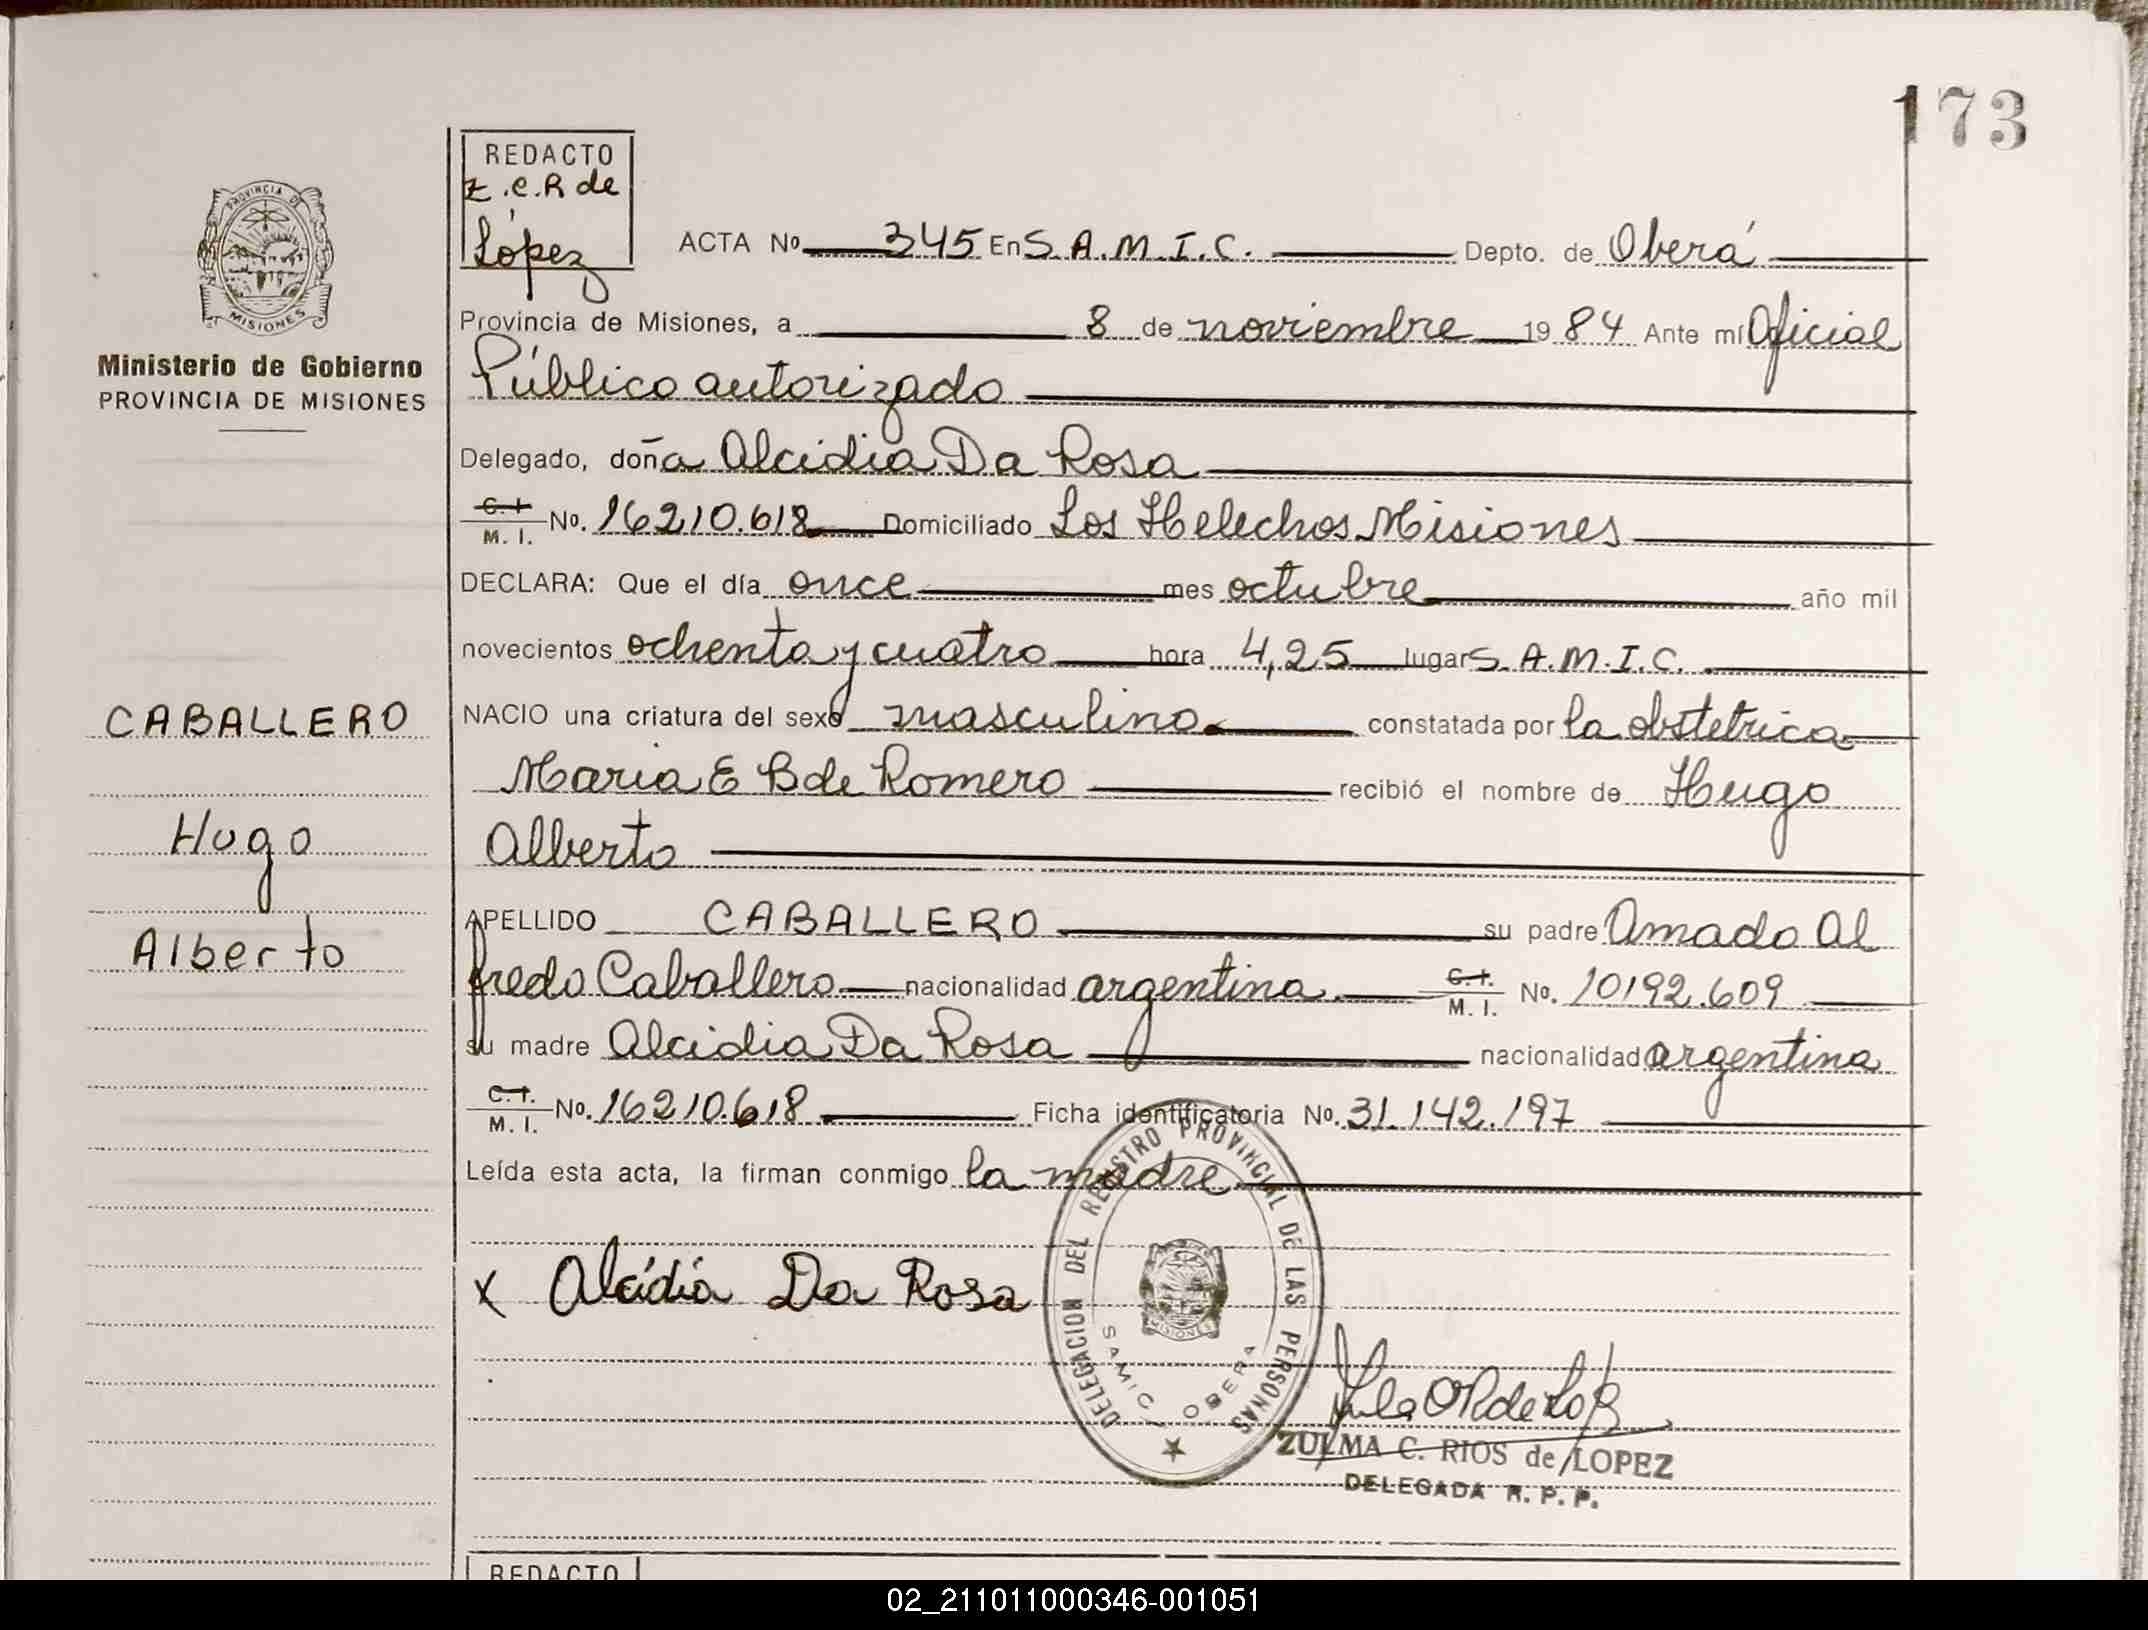 173
REDACTO
Z.C.R de
López
PROVINCIA DE
MISIONES
Ministerio de Gobierno
PROVINCIA DE MISIONES
ACTA Nº 345 En S.A.M.I.C. Depto. de Oberá
Provincia de Misiones, a 8 de noviembre 1984 Ante mí Oficial
Público autorizado
Delegado, doña Alcidia Da Rosa
C.I.
M. I. Nº. 16210.618 Domiciliado Los Helechos Misiones
DECLARA: Que el día once mes octubre año mil
novecientos ochenta y cuatro hora 4,25 lugar S.A.M.I.C.
CABALLERO
NACIO una criatura del sexo masculino constatada por la obstetrica
Maria E B de Romero recibió el nombre de Hugo
Hugo
Alberto
APELLIDO CABALLERO su padre Amado Al
Alberto
fredo Caballero nacionalidad argentina C.I.
M. I. Nº. 10192.609
su madre Alcidia Da Rosa nacionalidad argentina
C.I.
M. I. Nº. 16210.618 Ficha identificatoria Nº. 31.142.197
Leída esta acta, la firman conmigo la madre
x Alcidia Da Rosa
DELEGACION DEL REGISTRO PROVINCIAL DE LAS PERSONAS
MISIONES
SAMIC OBERA
ZULMA C. RIOS de LOPEZ
DELEGADA R. P. P.
REDACTO
02_211011000346-001051